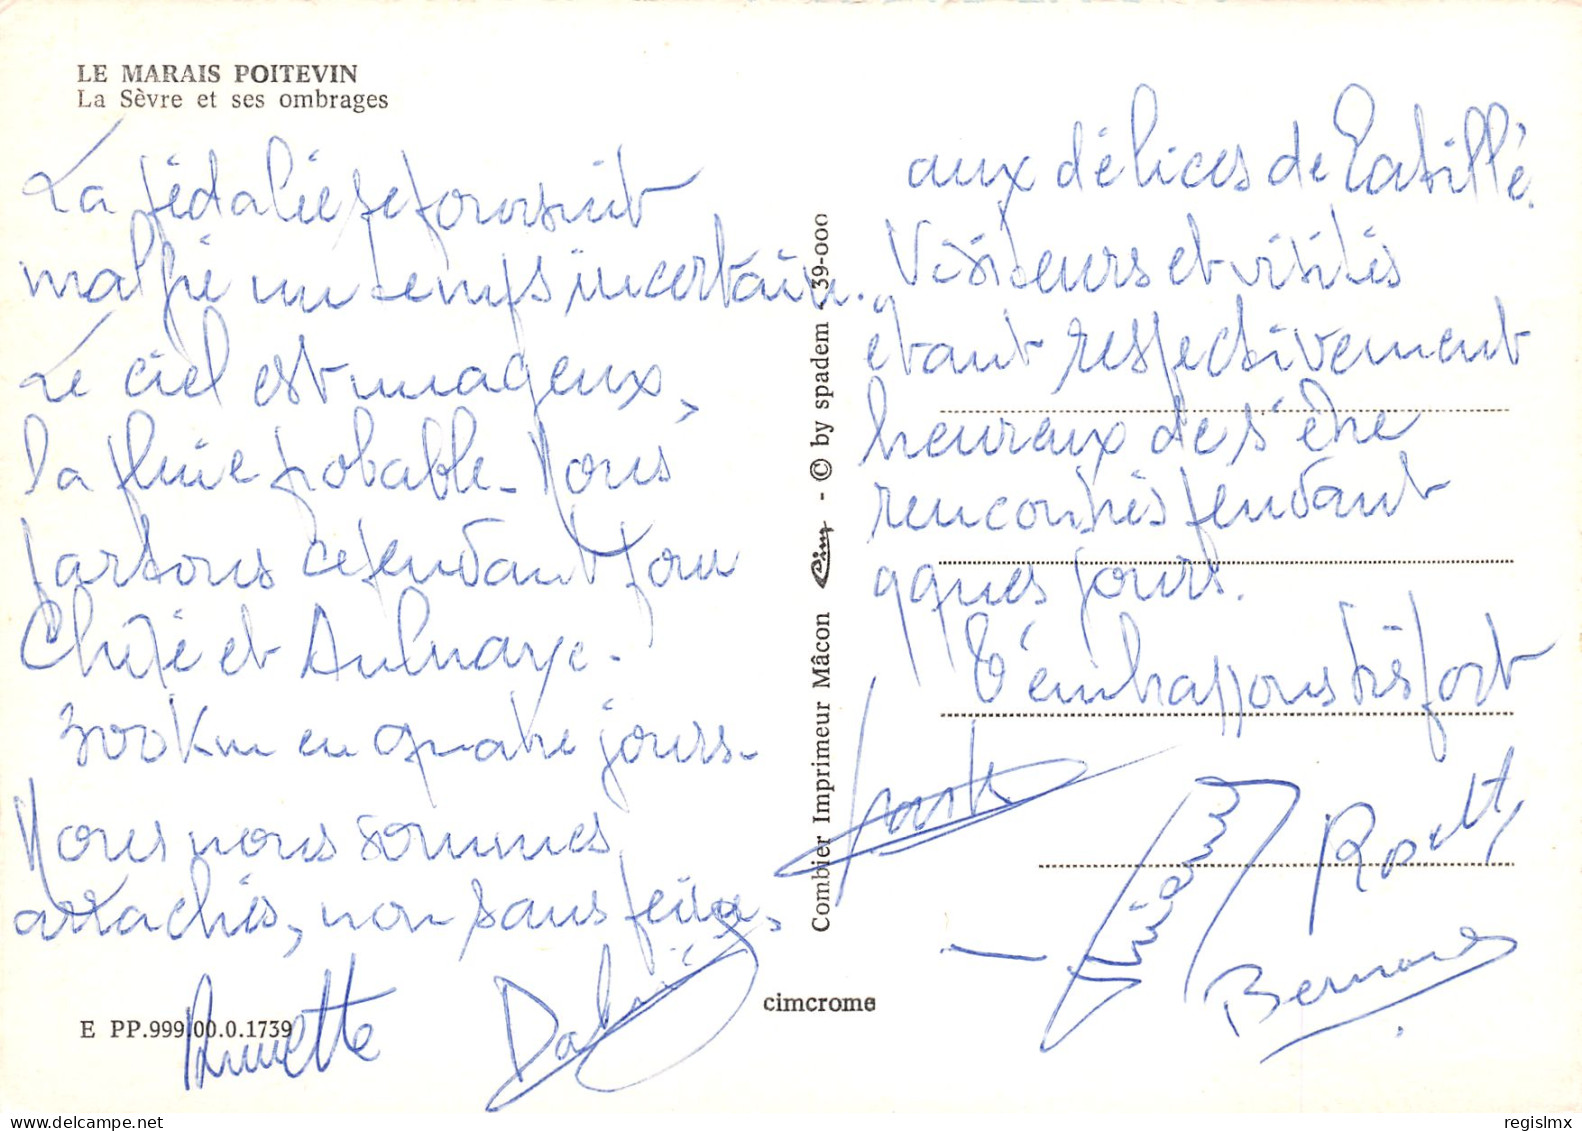 LE MARAIS POITEVIN
La Sèvre et ses ombrages
La pédalée se poursuit
malgré un temps incertain.
Le ciel est nuageux,
la pluie probable. Nous
partons cependant pour
Chizé et Aulnaye.
300 km en quatre jours.
Nous nous sommes
arrachés, non sans peine,
aux délices de Latillé.
Visiteurs et visités
étant respectivement
heureux de s'être
rencontrés pendant
qques jours.
T'embrassons très fort
Rosette
Bernard
Annette
E PP.999.00.0.1739
cimcrome
Combier Imprimeur Mâcon Cim - © by spadem - 39-000
regislmx